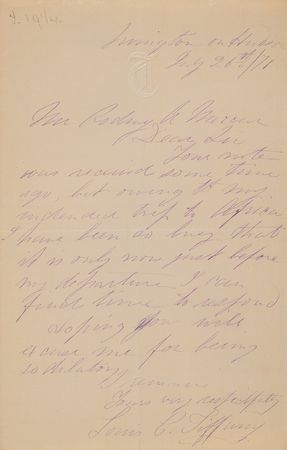 Irvington on Hudson
July 26th/77
Mr Rodney A Mercur
Dear Sir
Your note
was received some time
ago, but owing to my
intended trip to Africa
I have been so busy that
it is only now just before
my departure I can
find time to respond
Hoping you will
excuse me for being
so dilatory
I remain
Yours very respectfully
Louis C. Tiffany